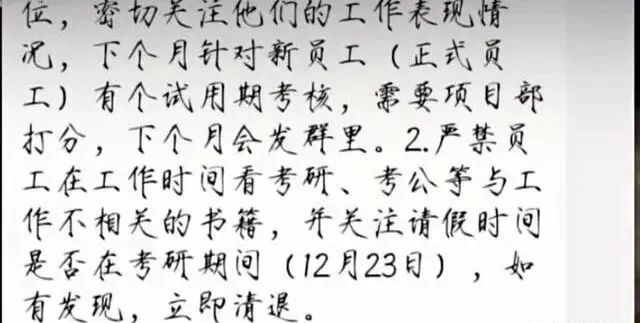 位，密切关注他们的工作表现情
况，下个月针对新员工（正式员
工）有个试用期考核，需要项目部
打分，下个月会发群里。2.严禁员
工在工作时间看考研、考公等与工
作不相关的书籍，并关注请假时间
是否在考研期间（12月23日），如
有发现，立即清退。